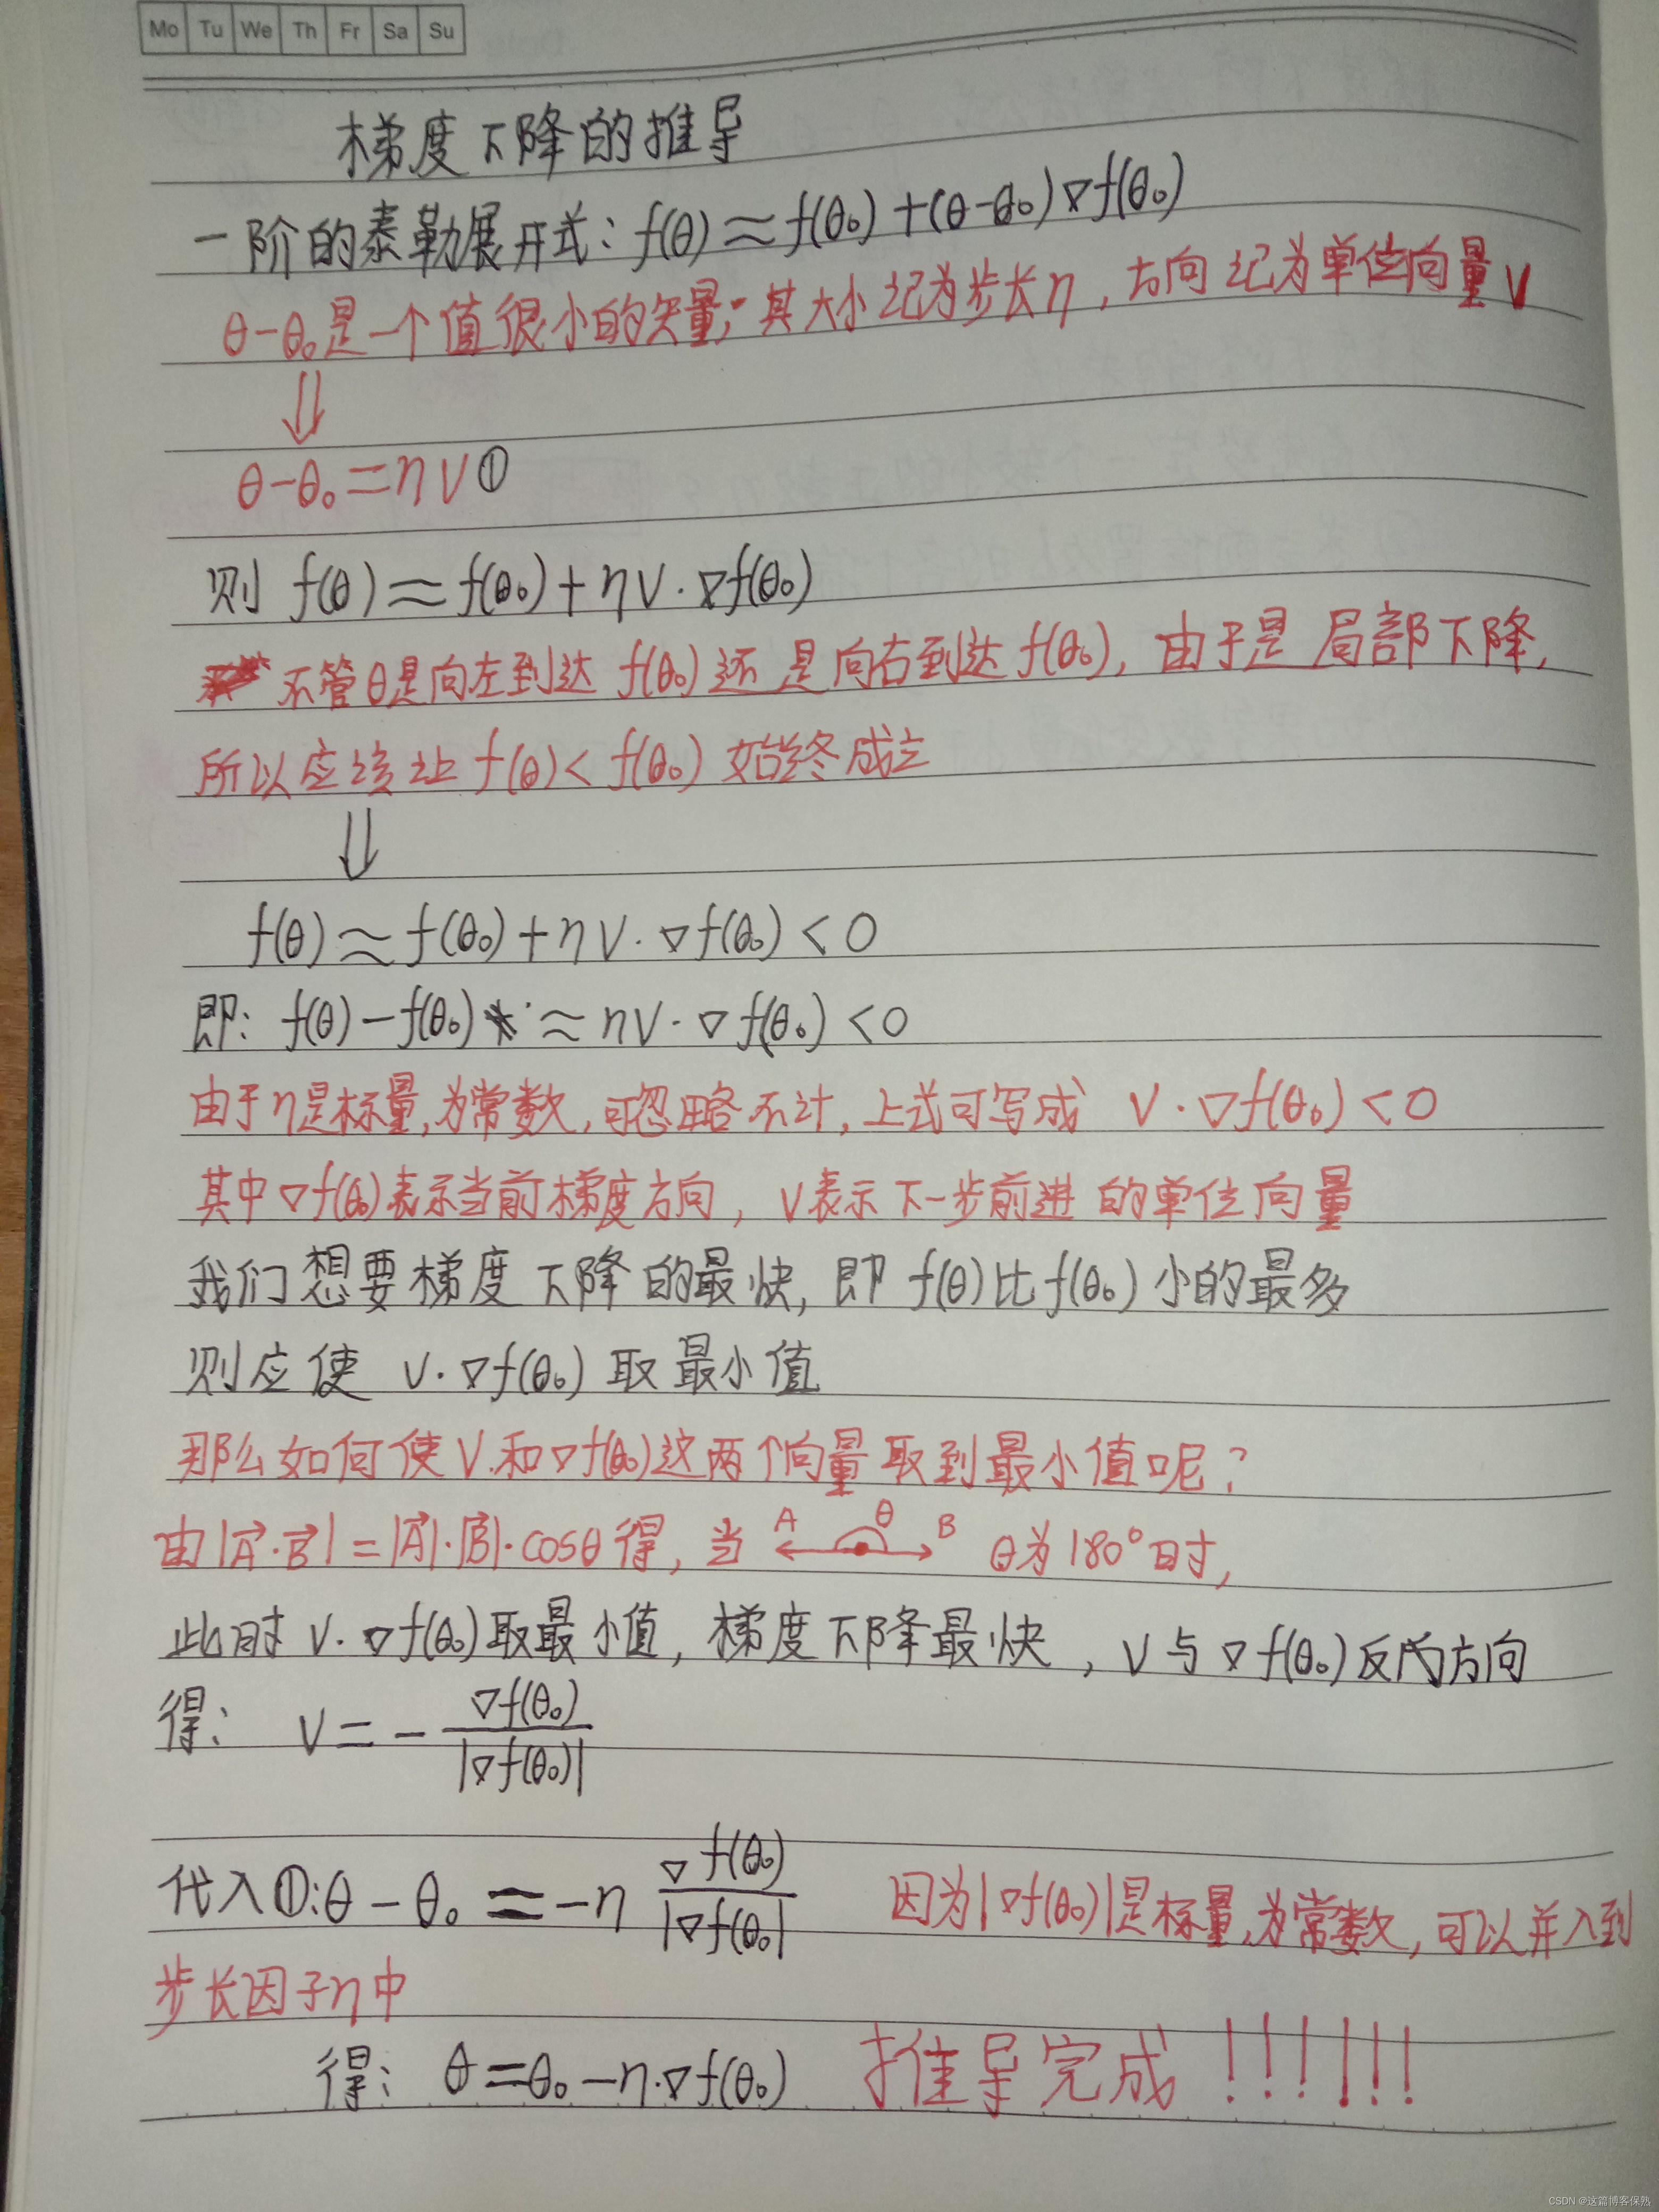 Mo Tu We Th Fr Sa Su
梯度下降的推导
一阶的泰勒展开式：f(θ)≈f(θ₀)+(θ-θ₀)▽f(θ₀)
θ-θ₀是一个值很小的矢量；其大小记为步长η，方向记为单位向量V
⇓
θ-θ₀=ηV①
则 f(θ)≈f(θ₀)+ηV·▽f(θ₀)
不管θ是向左到达f(θ₀)还是向右到达f(θ₀)，由于是局部下降，
所以应该让f(θ)<f(θ₀)始终成立
⇓
f(θ)≈f(θ₀)+ηV·▽f(θ₀)<0
即：f(θ)-f(θ₀)≈ηV·▽f(θ₀)<0
由于η是标量，为常数，可忽略不计，上式可写成 V·▽f(θ₀)<0
其中▽f(θ₀)表示当前梯度方向，V表示下一步前进的单位向量
我们想要梯度下降的最快，即f(θ)比f(θ₀)小的最多
则应使 V·▽f(θ₀)取最小值
那么如何使V和▽f(θ₀)这两个向量取到最小值呢？
由|A⃗·B⃗|=|A⃗|·|B⃗|·cosθ得，当 A θ B θ为180°时，
此时V·▽f(θ₀)取最小值，梯度下降最快，V与▽f(θ₀)反方向
得：V=-▽f(θ₀)/|▽f(θ₀)|
代入①:θ-θ₀=-η▽f(θ₀)/|▽f(θ₀| 因为|▽f(θ₀)|是标量，为常数，可以并入到
步长因子η中
得：θ=θ₀-η·▽f(θ₀) 推导完成！！！！！！
CSDN @这篇博客保熟